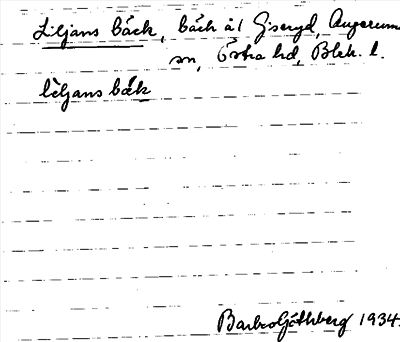 Liljans bäck, bäck å 1 Giseryd, Augerums
sn, Östra hd, Blek. l.
lìljans bæ̀k
Barbro Göthberg 1934.